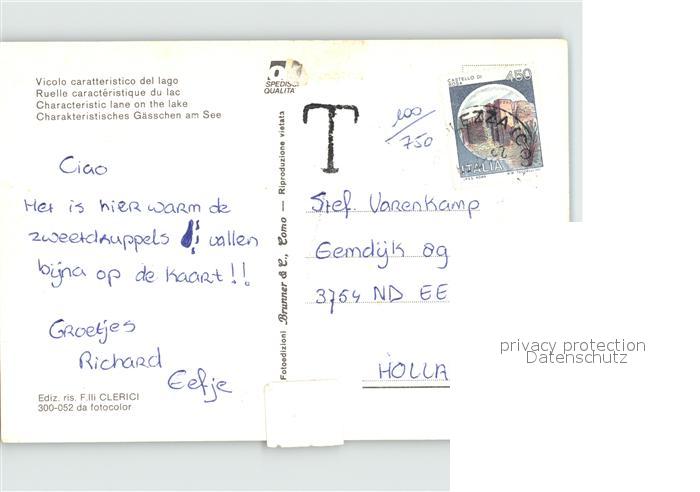 Vicolo caratteristico del lago
Ruelle caractéristique du lac
Characteristic lane on the lake
Charakteristisches Gässchen am See
SPEDISCI
QUALITA'
CASTELLO DI
450
ITALIA
T
100/750
Ciao
Het is hier warm de
zweetdruppels vallen
bijna op de kaart!!
Groetjes
Richard
Eefje
Ediz. ris. F.lli CLERICI
300-052 da fotocolor
Fotoedizioni Brunner & C., Como — Riproduzione vietata
Stef. Varenkamp
Eemdijk 89
3754 ND EE
HOLLA
privacy protection
Datenschutz